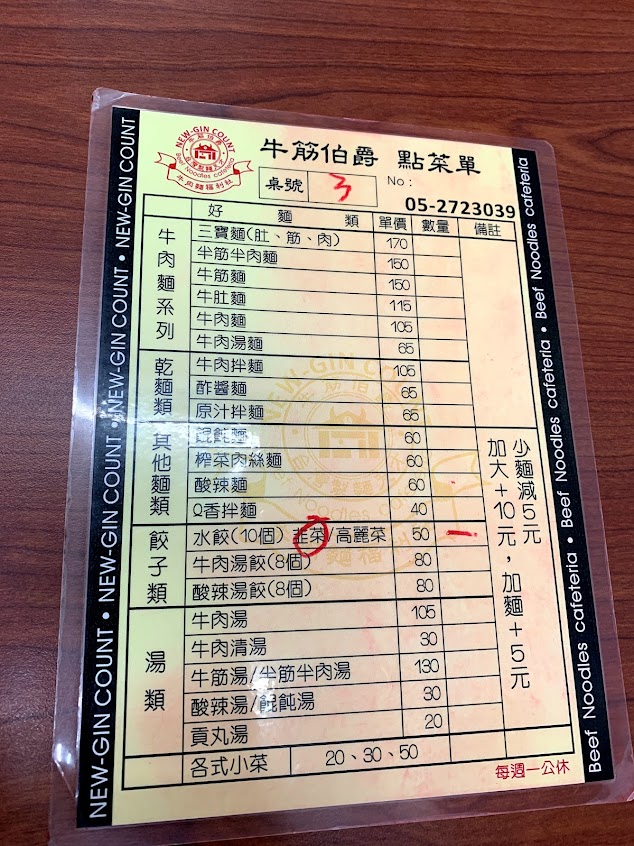 NEW-GIN COUNT
牛筋伯爵
Beef Noodles cafeteria
牛肉麵福利社
牛筋伯爵 點菜單
桌號 3 No:
05-2723039
好麵類 單價 數量 備註
牛肉麵系列
三寶麵(肚、筋、肉) 170
半筋半肉麵 150
牛筋麵 150
牛肚麵 115
牛肉麵 105
牛肉湯麵 65
乾麵類
牛肉拌麵 105
酢醬麵 65
原汁拌麵 65
其他麵類
餛飩麵 60
榨菜肉絲麵 60
酸辣麵 60
Q香拌麵 40
餃子類
水餃(10個) 韭菜/高麗菜 50 一
牛肉湯餃(8個) 80
酸辣湯餃(8個) 80
湯類
牛肉湯 105
牛肉清湯 30
牛筋湯/半筋半肉湯 130
酸辣湯/餛飩湯 30
貢丸湯 20
各式小菜 20、30、50
少麵減5元
加大+10元,加麵+5元
每週一公休
NEW-GIN COUNT • NEW-GIN COUNT • NEW-GIN COUNT • NEW-GIN COUNT
Beef Noodles cafeteria • Beef Noodles cafeteria • Beef Noodles cafeteria